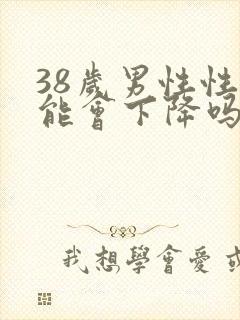 38歲男性性
能會下降吗
我想學會愛或